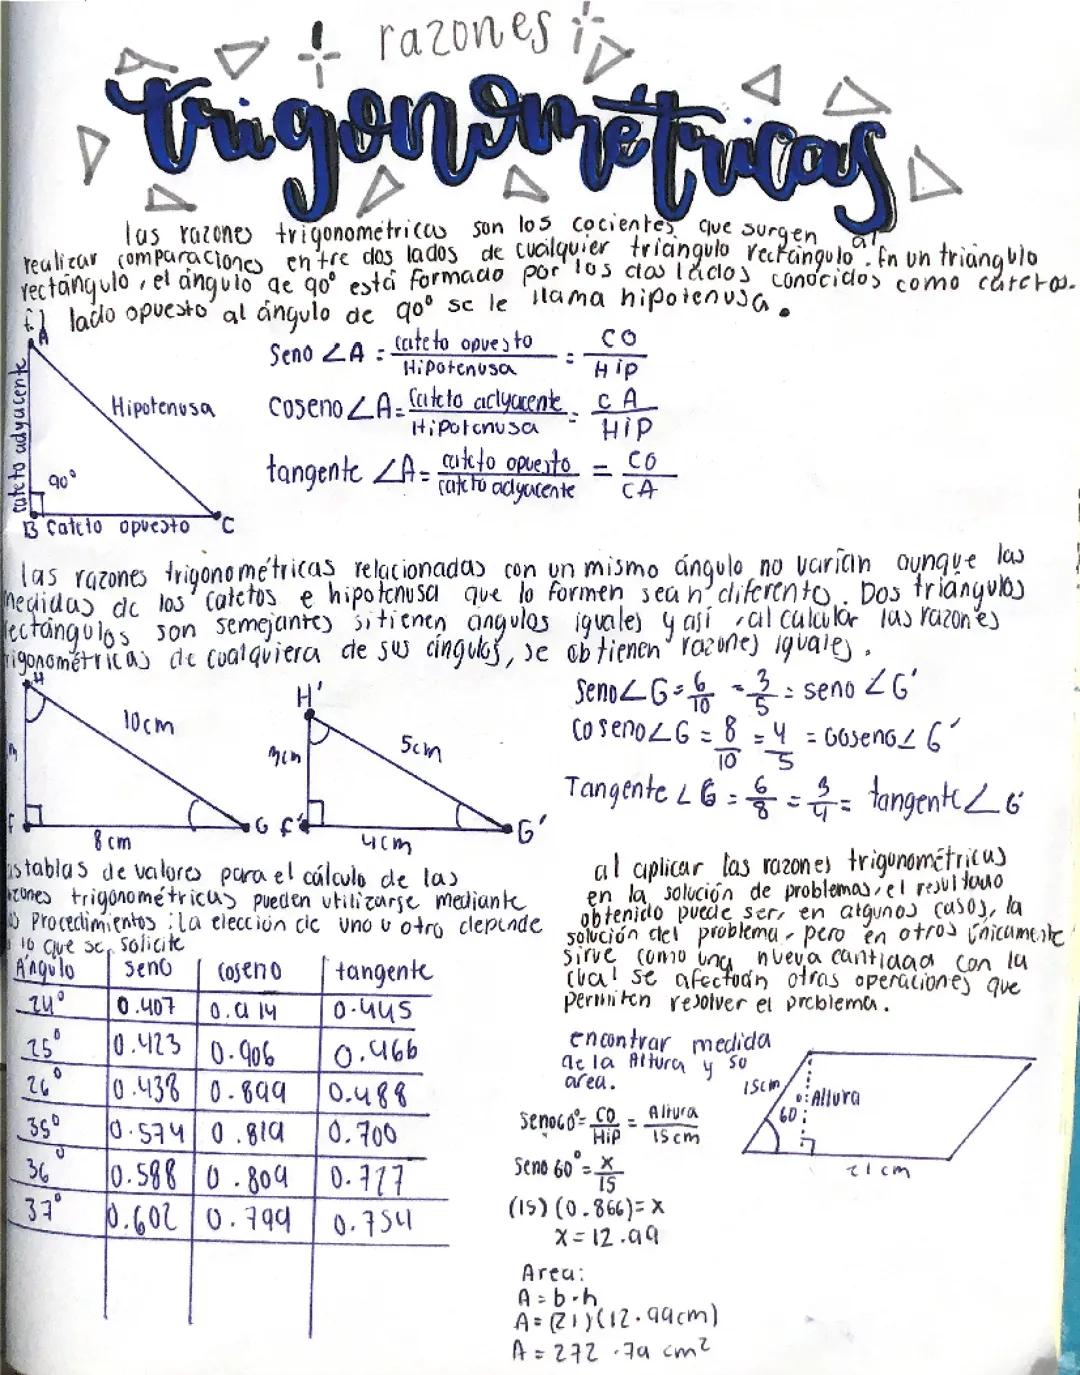 razones
trigonométricas
las razones trigonométricas son los cocientes que surgen al
realizar comparaciones entre dos lados de cualquier triángulo rectángulo. En un triángulo
rectángulo, el ángulo de 90° está formado por los dos lados conocidos como catetos.
El lado opuesto al ángulo de 90° se le llama hipotenusa.
A
cateto adyacente
Hipotenusa
90°
B Cateto opuesto C
Seno ∠A = Cateto opuesto / Hipotenusa = CO / Hip
Coseno ∠A = Cateto adyacente / Hipotenusa = CA / HIP
tangente ∠A = cateto opuesto / cateto adyacente = CO / CA
las razones trigonométricas relacionadas con un mismo ángulo no varían aunque las
medidas de los catetos e hipotenusa que lo formen sean diferentes. Dos triángulos
rectángulos son semejantes si tienen angulos iguales y así, al calcular las razones
trigonométricas de cualquiera de sus ángulos, se obtienen razones iguales.
H
10cm
m
F
8cm
G
H'
3cm
5cm
F'
4cm
G'
Seno ∠G = 6/10 = 3/5 = seno ∠G'
Coseno ∠G = 8/10 = 4/5 = Coseno ∠G'
Tangente ∠G = 6/8 = 3/4 = tangente ∠G'
as tablas de valores para el cálculo de las
razones trigonométricas pueden utilizarse mediante
procedimientos; la elección de uno u otro depende
lo que se solicite
Ángulo seno coseno tangente
24° 0.407 0.914 0.445
25° 0.423 0.906 0.466
26° 0.438 0.899 0.488
35° 0.574 0.819 0.700
36° 0.588 0.809 0.727
37° 0.602 0.799 0.754
al aplicar las razones trigonométricas
en la solución de problemas, el resultado
obtenido puede ser, en algunos casos, la
solución del problema, pero en otros únicamente
sirve como una nueva cantidad con la
cual se afectuán otras operaciones que
permiten resolver el problema.
encontrar medida
de la Altura y su
area.
15cm
Altura
60°
21cm
Seno60° = CO/Hip = Altura/15cm
Seno 60° = x/15
(15)(0.866)=x
x=12.99
Area:
A=b·h
A=(21)(12.99cm)
A=272.79 cm²